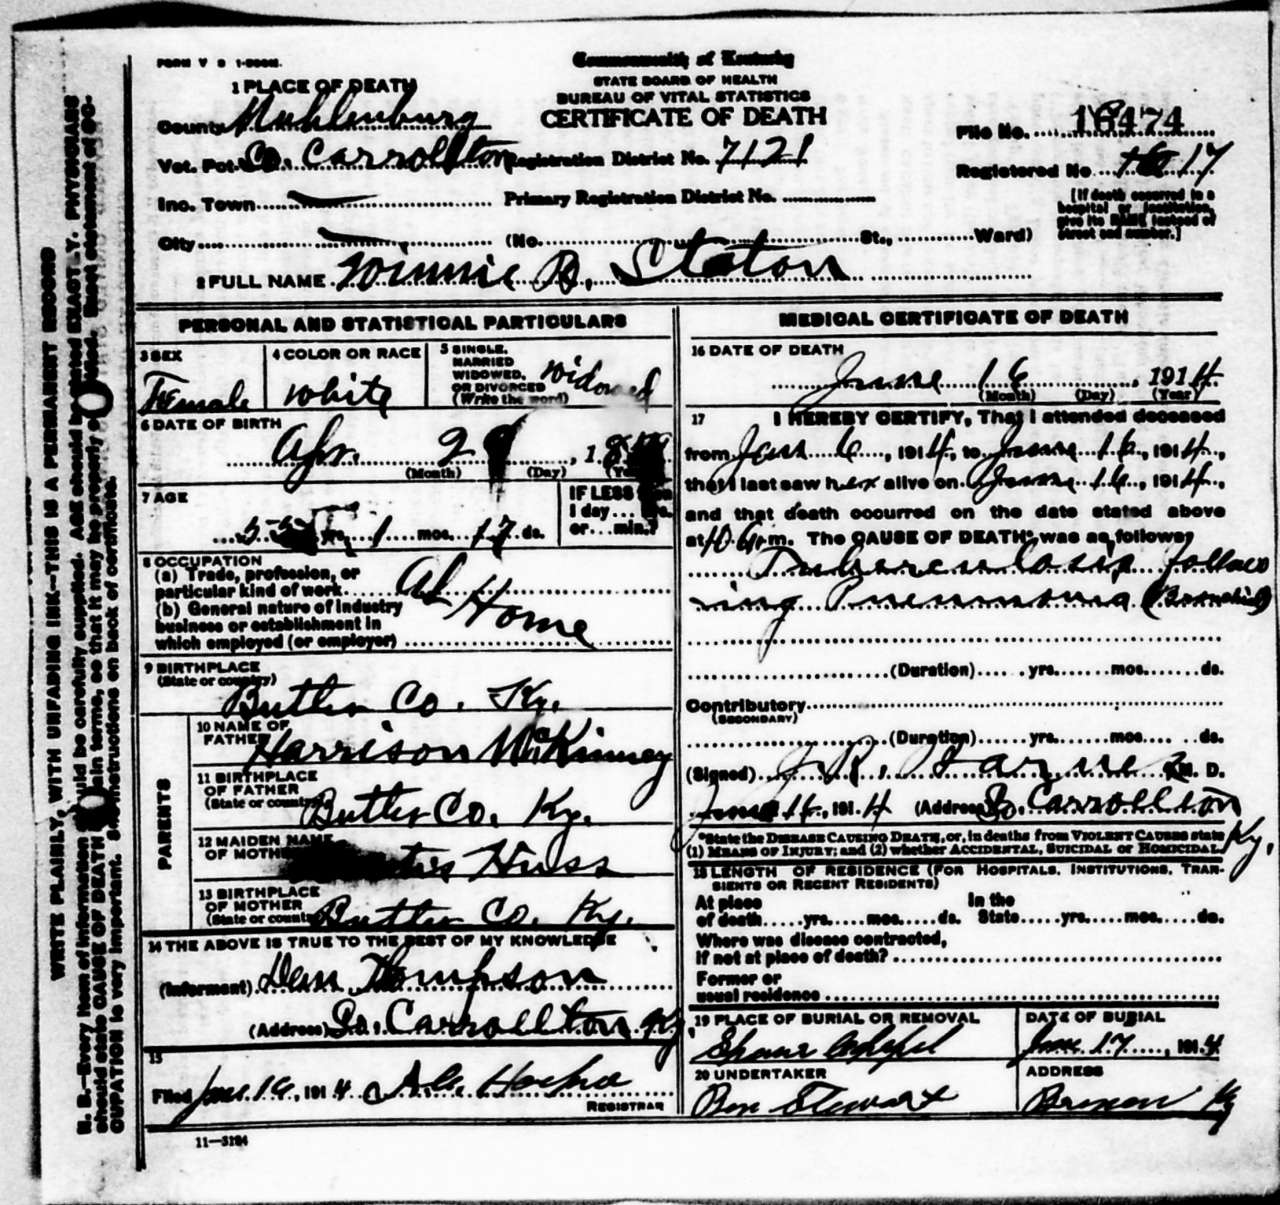 FORM V S 1-200M.
Commonwealth of Kentucky
STATE BOARD OF HEALTH
BUREAU OF VITAL STATISTICS
CERTIFICATE OF DEATH
1 PLACE OF DEATH
County Muhlenburg
Vot. Pct. So. Carrollton Registration District No. 7121
File No. 16474
Registered No. 17
Inc. Town Primary Registration District No.
[If death occurred in a
hospital or institution,
give its NAME instead of
street and number.]
City (No. St., Ward)
2 FULL NAME Winnie B. Staton
PERSONAL AND STATISTICAL PARTICULARS
3 SEX
Female
4 COLOR OR RACE
White
5 SINGLE,
MARRIED
WIDOWED,
OR DIVORCED
(Write the word)
Widowed
6 DATE OF BIRTH
Apr. 2
(Month) (Day)
7 AGE
55 yrs. 1 mos. 17 ds.
IF LESS than
1 day
or min.?
8 OCCUPATION
(a) Trade, profession, or
particular kind of work At Home
(b) General nature of industry
business or establishment in
which employed (or employer)
9 BIRTHPLACE
(State or country)
Butler Co. Ky.
PARENTS
10 NAME OF
FATHER Harrison McKinney
11 BIRTHPLACE
OF FATHER
(State or country) Butler Co. Ky.
12 MAIDEN NAME
OF MOTHER Huss
13 BIRTHPLACE
OF MOTHER
(State or country) Butler Co. Ky.
14 THE ABOVE IS TRUE TO THE BEST OF MY KNOWLEDGE
(Informant) Thompson
(Address) So. Carrollton Ky.
15
Filed June 16, 1914
REGISTRAR
11—3184
MEDICAL CERTIFICATE OF DEATH
16 DATE OF DEATH
June 16, 1914
(Month) (Day) (Year)
17 I HEREBY CERTIFY, That I attended deceased
from 6, 1914, to June 16, 1914,
that I last saw her alive on June 16, 1914,
and that death occurred on the date stated above
at 10 m. The CAUSE OF DEATH* was as follows
Tuberculosis follow
ing Pneumonia (Bronchial)
(Duration) yrs. mos. ds.
Contributory
(SECONDARY)
(Duration) yrs. mos. ds.
(Signed) J. R. M. D.
June 16, 1914 (Address) So. Carrollton
Ky.
*State the DISEASE CAUSING DEATH, or, in deaths from VIOLENT CAUSES state
(1) MEANS OF INJURY; and (2) whether ACCIDENTAL, SUICIDAL OR HOMICIDAL.
18 LENGTH OF RESIDENCE (FOR HOSPITALS, INSTITUTIONS, TRAN-
SIENTS OR RECENT RESIDENTS)
At place In the
of death yrs. mos. ds. State yrs. mos. ds.
Where was disease contracted,
if not at place of death?
Former or
usual residence
19 PLACE OF BURIAL OR REMOVAL
DATE OF BURIAL
June 17, 1914
20 UNDERTAKER
Ben Stewart
ADDRESS
Bremen Ky
N. B.—Every item of information should be carefully supplied. AGE should be stated EXACTLY. PHYSICIANS
should state CAUSE OF DEATH in plain terms, so that it may be properly classified. Exact statement of OC-
CUPATION is very important. See instructions on back of certificate.
WRITE PLAINLY, WITH UNFADING INK—THIS IS A PERMANENT RECORD